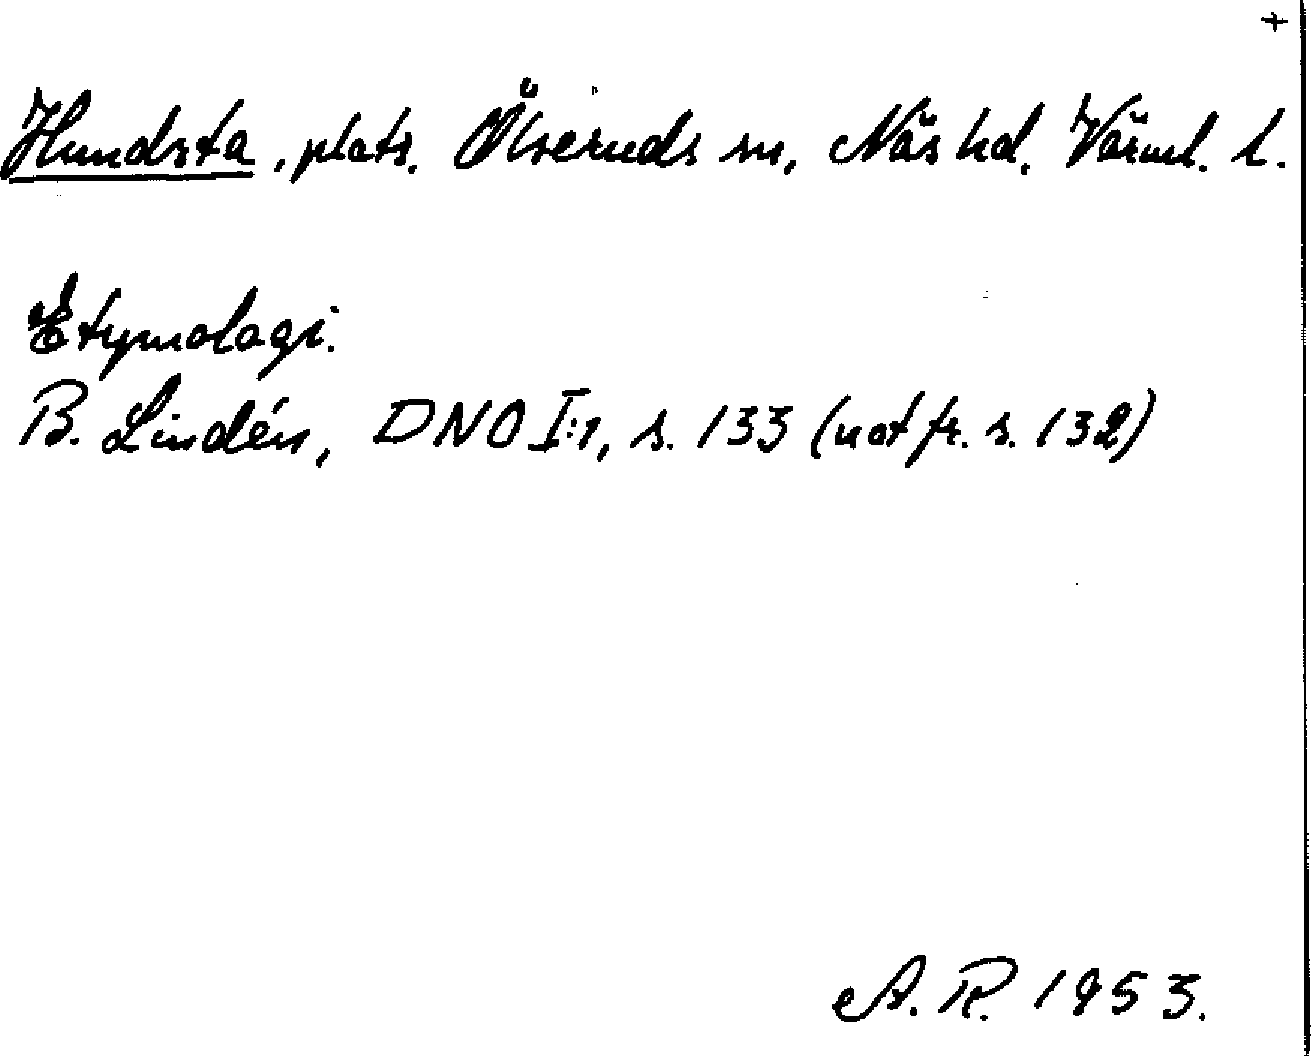 +
Hundsta, plats. Ölseruds sn, Näs hd. Värml. l.
Etymologi.
B. Lindén, DNO I:1, s. 133 (not fr. s. 132)
A. R. 1953.